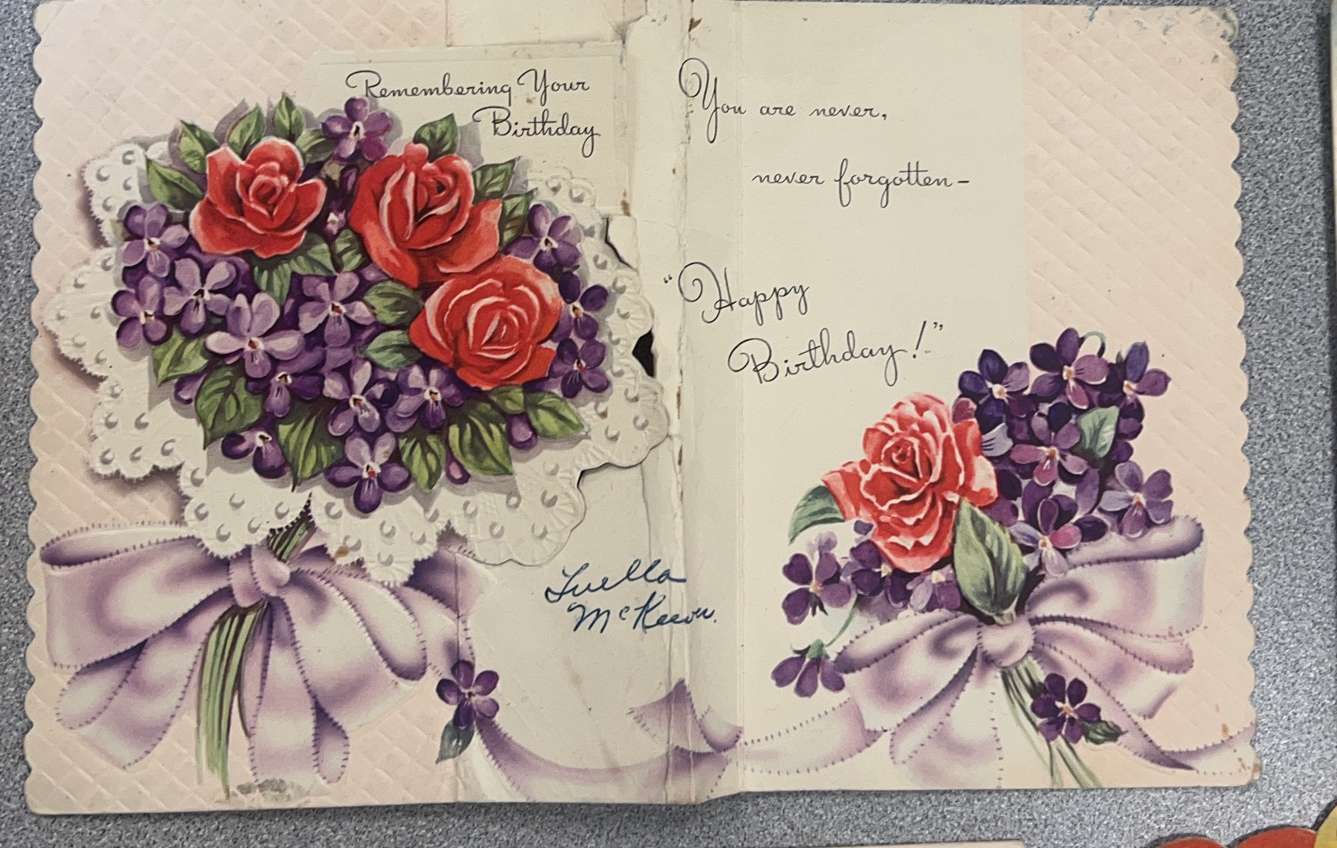 Remembering Your
Birthday
You are never,
never forgotten-
"Happy
Birthday!"
Luella
McKeown.